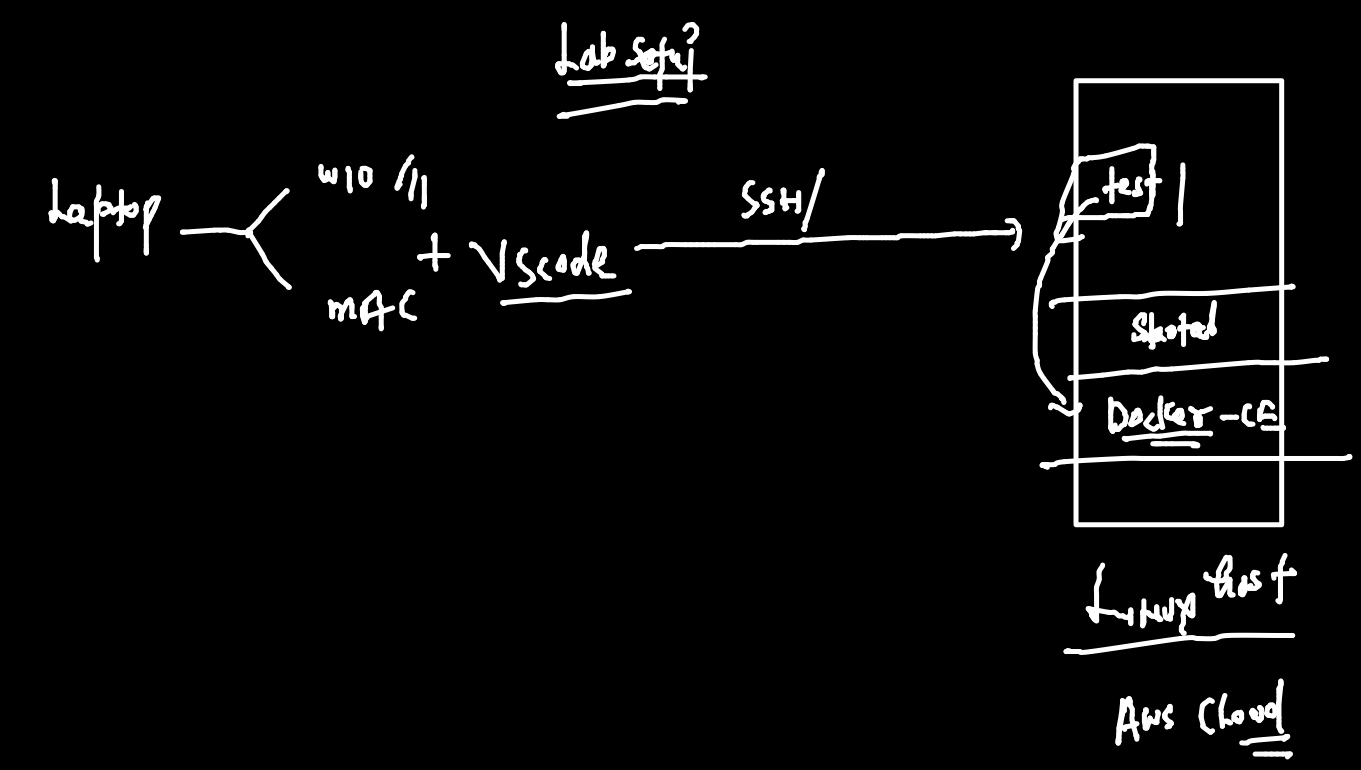 Lab setup
Laptop
W10 /11
MAC
+ VScode
SSH/
test
Started
Docker-CE
Linux host
Aws Cloud